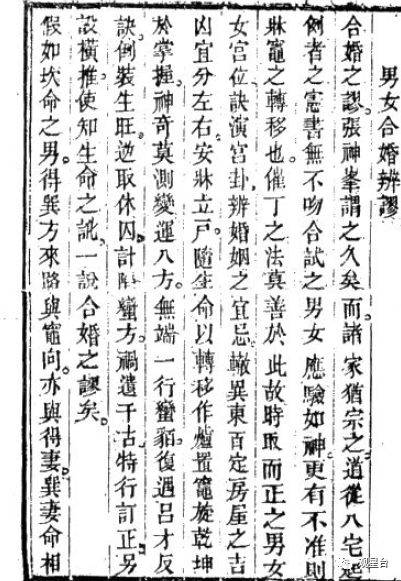 男女合婚辨謬
合婚之謬張神峯謂之久矣而諸家猶宗之道從八宅起
例者之憲書無不吻合試之男女應驗如神更有不准則
牀竈之轉移也催丁之法莫善於此故時取而正之男女
女宫位訣演宫卦辨婚姻之宜忌轍異東百定房屋之吉
凶宜分左右安牀立戸隨生命以轉移作竈置竈旋乾坤
於掌握神奇莫測變運八方。無端一行蠻貊復遇呂才反
訣倒裝生旺逆取休囚計蠻方。禍遺千古特行訂正另
設橫推使知生命之訛一說合婚之謬矣。
假如坎命之男。得巽方來路與竈向。亦與得妻巽妻命相
观星台